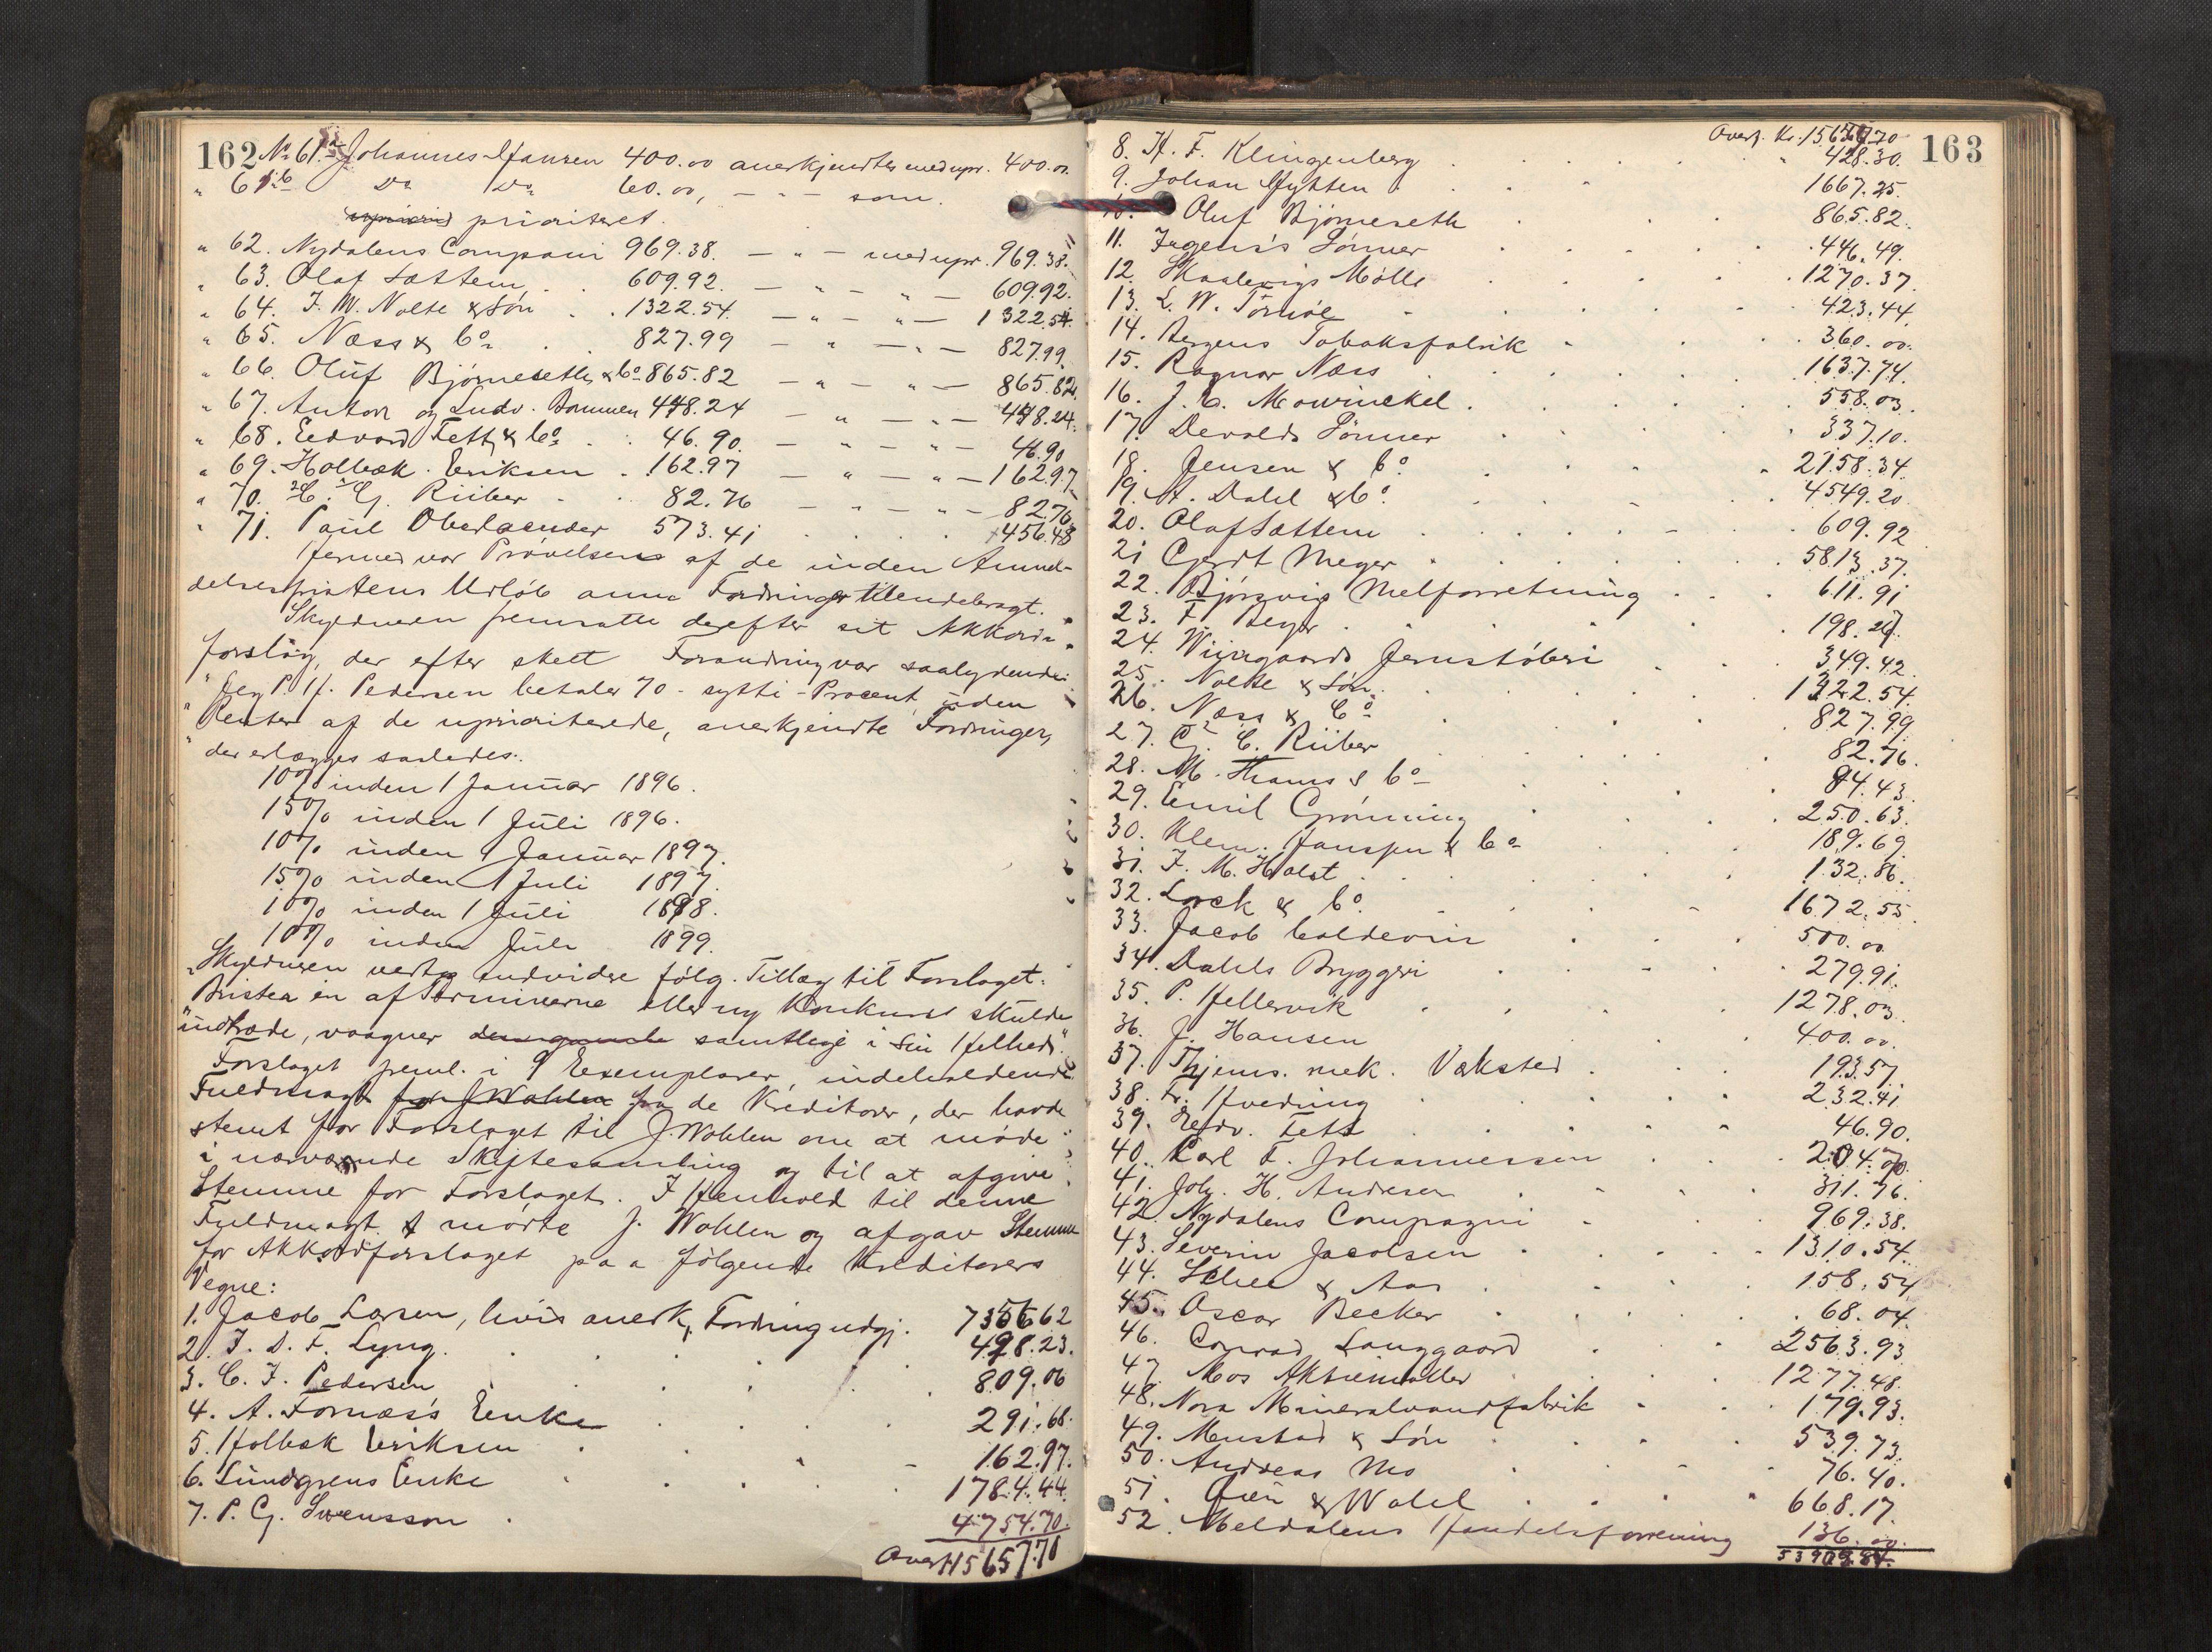 162 No 61.a Johannes Hansen 400.00 anerkjendtes med upr. 400.00
" 61b Do Do 60.00, — " — som
prioriteret.
" 62. Nydalens Compani 969.38. — " — med upr. 969.38.
" 63. Olaf Sættem . . 609.92. — " — " — 609.92.
" 64. F. W. Nolte & Søn . . 1322.54. — " — " — 1322.54.
" 65. Næss & Co . . 827.99 — " — " — 827.99.
" 66. Oluf Bjørneseth & Co 865.82 — " — " — 865.82.
" 67. Anton og Ludv. Bommen 448.24 — " — " — 448.24.
" 68. Edvard Fett & Co . . 46.90. — " — " — 46.90
" 69. Holbæk Eriksen . 162.97 — " — " — 162.97
" 70. C. G. Riiber . . 82.76 — " — " — 82.76
" 71. Paul Oberlaender 573.41 . . . . 456.48
Hermed var Prøvelsen af de inden Anmel-
delsesfristens Udløb anm. Fordringer tilendebragt.
Skyldneren fremsatte derefter sit Akkords-
forslag, der efter skeet Forandring var saalydende:
"Jeg P. H. Pedersen betaler 70 - sytti - Procent uden
"Renter af de uprioriterede, anerkjendte Fordringer,
"der erlægges saaledes:
10% inden 1 Januar 1896.
15% inden 1 Juli 1896.
10% inden 1 Januar 1897.
15% inden 1 Juli 1897.
10% inden 1 Juli 1898.
10% inden Juli 1899.
"Skyldneren vedtog endvidere følg. Tillæg til Forslaget:
Brister en af Terminerne eller ny Konkurs skulde
"indtræde, vaagner samtlige i sin Helhed".
Forslaget freml. i 9 Exemplarer, indeholdende
Fuldmagt for J Wahlen fra de Kreditorer, der havde
stemt for Forslaget til J. Wohlen om at møde
i nærværende Skiftesamling og til at afgive
Stemme for Forslaget. I Henhold til denne
Fuldmagt mødte J. Wohlen og afgav Stemme
for Akkordforslaget paa følgende Kreditorers
Vegne:
1. Jacob Larsen, hvis anerk. Fordring udgj. 7356.62
2. J. D. F. Lyng. . . . 498.23.
3. C. F. Pedersen . . . 809.06
4. A. Fornæs's Enke . . . 291.68.
5. Holbæk Eriksen . . . 162.97.
6. Lundgrens Enke . . . 1784.44.
7. P. G. Swensson . 4754.70.
Overf. 15657.70
Overf. Kr. 15657.70 163
8. H. F. Klingenberg . . . " 428.30.
9. Johan Hykken . . . 1667.25.
10. Oluf Bjørneseth . . . 865.82.
11. Jugens's Sønner . . . 446.49.
12. Skaalevigs Mølle . . . 1270.37.
13. L. W. Törnöe . . . 423.44.
14. Bergens Tobaksfabrik . . . 360.00.
15. Ragnar Næss . . . 1637.74.
16. J. C. Mowinckel . . . 558.03.
17. Devolds Sønner . . . 337.10.
18. Jensen & Co . . . 2158.34.
19. A. Dahl & Co . . . 4549.20
20. Olaf Sættem . . . 609.92
21 Gerdt Meyer . . . 5813.37.
22. Bjørsvig Melforretning . . . 611.91
23. F. Beyer . . . 198.27.
24. Wingaards Jernstøberi . . . 349.42.
25. Nolte & Søn . . . 1322.54.
26. Næss & Co . . . 827.99
27. G. C. Riiber . . . 82.76.
28. M. Thams & Co . . . 84.43.
29. Emil Grønning . . . 250.63.
30. Klem. Hanssen & Co . . . 189.69
31. F. M. Holst . . . 132.86.
32. Lorck & Co . . . 1672.55.
33. Jacob Coldevin . . . 500.00
34. Dahls Bryggeri . . . 279.91.
35. P. Hellesvik . . . 1278.03.
36. J. Hansen . . . 400.00.
37. Thjems. mek. Værksted . . . 193.57.
38. Fr. Hvedning . . . 232.41
39. Edv. Fett . . . 46.90.
40. Carl F. Johannessen . . . 204.70.
41. Joh. H. Andresen . . . 311.76.
42. Nydalens Compagni . . . 969.38.
43. Severin Jacobsen . . . 1310.54.
44. Schee & Aas . . . 158.54
45. Oscar Becker . . . 68.04.
46. Conrad Langgaard . . . 2563.93
47. Mos Aktiemøller . . . 1277.48.
48. Nora Mineralvandfabrik . . . 179.93.
49. Mustad & Søn . . . 539.73.
50. Andreas Mo . . . 76.40.
51. Øien & Wahl . . . 668.17.
52. Meldalens Handelsforening 136.00.
53909.84.